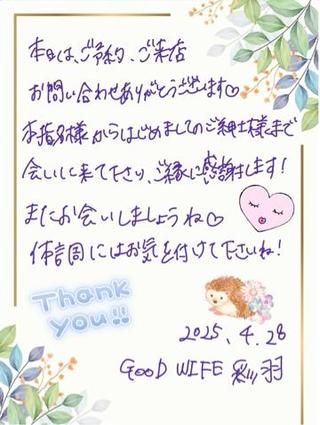 本日は、ご予約、ご来店
お問い合わせありがとうございます♡
本指名様からはじめましてのご紳士様まで
会いに来て下さり、ご縁に感謝します!
またお会いしましょうね♡
体調にはお気を付けて下さいね!
Thank
you!!
2025.4.28
GOOD WIFE 彩羽